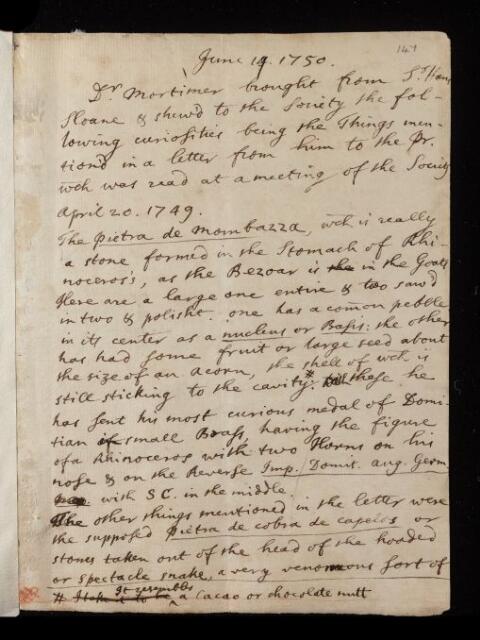 141
June 14. 1750.
Dr Mortimer brought from Sr Hans
Sloane & shew'd to the Society the fol-
lowing curiosities being the Things men-
tion'd in a letter from him to the Pr.
wch was read at a meeting of the Society
April 20. 1749.
The Pietra de Mombazza, wch is really
a stone formed in the Stomach of Rhi-
noceros's, as the Bezoar is the in the Goats
Here are a large one entire & two saw'd
in two & polisht. one has a common pebble
in its center as a nucleus or Basis: the other
has had some fruit or large seed about
the size of an Acorn, the shell of wch is
still sticking to the cavity.# these he
has sent his most curious medal of Domi-
tian small Brass, having the figure
of a Rhinoceros with two Horns on his
nose & on the Reverse Imp. Domit. aug. Germ
with SC. in the middle.
The other things mentioned in the letter were
the supposed Pietra de cobra de capelos or
stones taken out of the head of the hooded
or spectacle snake, a very venomous sort of
# Itch is to be It resembles a Cacao or chocolate nutt